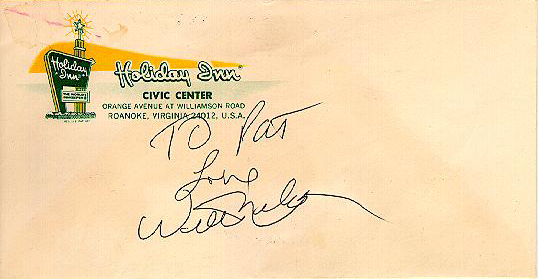 Holiday Inn
Holiday Inn®
CIVIC CENTER
ORANGE AVENUE AT WILLIAMSON ROAD
ROANOKE, VIRGINIA 24012, U.S.A.
TO Pat
Love